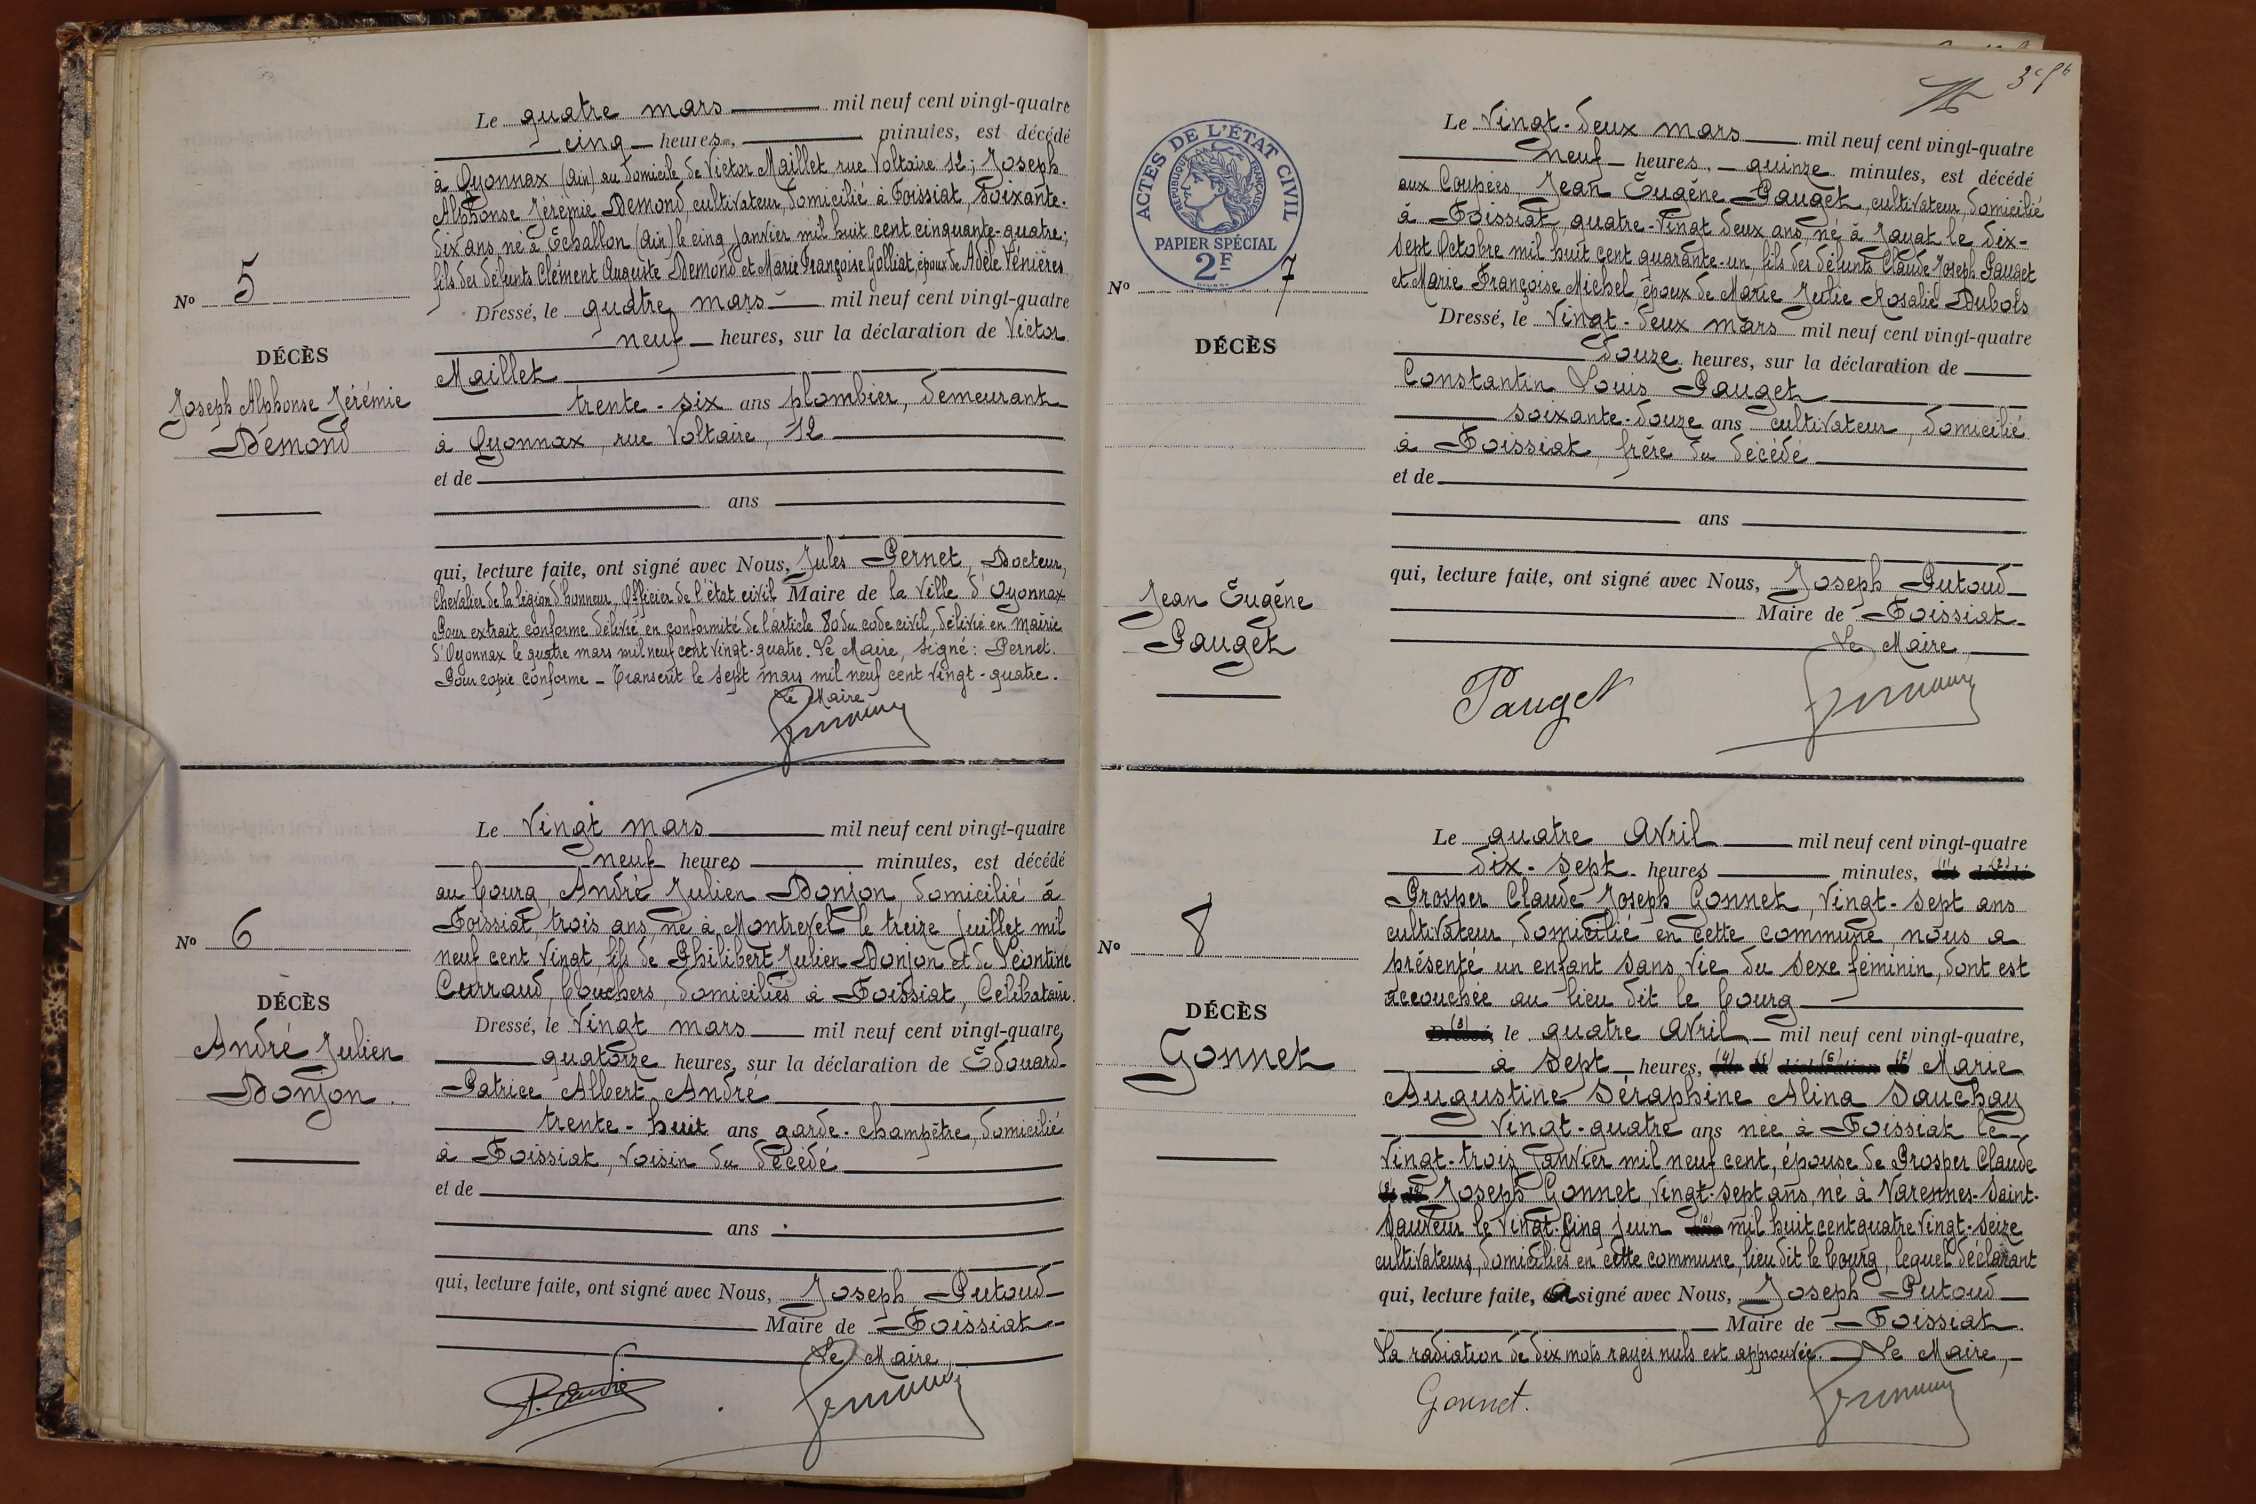 Le quatre mars mil neuf cent vingt-quatre
cinq heures, minutes, est décédé
à Oyonnax (Ain) au domicile de Victor Maillet rue Voltaire 12; Joseph
Alphonse Jérémie Demond, cultivateur, domicilié à Foissiat, soixante-
dix ans, né à Echallon (Ain) le cinq janvier mil huit cent cinquante-quatre;
fils des défunts Clément Auguste Demond et Marie Françoise Golliat, époux de Adèle Vénières
Nº 5
DÉCÈS
Joseph Alphonse Jérémie
Demond
Dressé, le quatre mars mil neuf cent vingt-quatre
neuf heures, sur la déclaration de Victor
Maillet
trente-six ans plombier, demeurant
à Oyonnax, rue Voltaire, 12
et de
ans
qui, lecture faite, ont signé avec Nous, Jules Pernet, Docteur,
Chevalier de la légion d'honneur, Officier de l'état civil Maire de la Ville d'Oyonnax
Pour extrait conforme délivré en conformité de l'article 80 du code civil, délivré en mairie
d'Oyonnax le quatre mars mil neuf cent vingt-quatre. Le Maire, signé : Pernet.
Pour copie conforme - Transcrit le sept mars mil neuf cent vingt-quatre.
Le Maire
Le vingt mars mil neuf cent vingt-quatre
neuf heures minutes, est décédé
au bourg, André Julien Donjon, domicilié à
Foissiat, trois ans, né à Montrevel le treize juillet mil
neuf cent vingt, fils de Philibert Julien Donjon et de Léontine
Curraud, bouchers, domiciliés à Foissiat, Célibataire.
Nº 6
DÉCÈS
André Julien
Donjon.
Dressé, le vingt mars mil neuf cent vingt-quatre,
quatorze heures, sur la déclaration de Edouard
Patrice Albert André
trente-huit ans garde-champêtre, domicilié
à Foissiat, voisin du décédé
et de
ans
qui, lecture faite, ont signé avec Nous, Joseph Putoud
Maire de Foissiat
Le Maire,
P. André
ACTES DE L'ÉTAT CIVIL
RÉPUBLIQUE FRANÇAISE
PAPIER SPÉCIAL
2F
Le vingt-deux mars mil neuf cent vingt-quatre
neuf heures, quinze minutes, est décédé
aux Coupées, Jean Eugène Pauget, cultivateur, domicilié
à Foissiat, quatre-vingt deux ans, né à Jayat le dix-
sept Octobre mil huit cent quarante-un, fils des défunts Claude Joseph Pauget
et Marie Françoise Michel, époux de Marie Julie Rosalie Dubois
Nº 7
DÉCÈS
Jean Eugène
Pauget
Dressé, le vingt-deux mars mil neuf cent vingt-quatre
douze heures, sur la déclaration de
Constantin Louis Pauget
soixante-douze ans cultivateur, domicilié
à Foissiat, frère du décédé
et de
ans
qui, lecture faite, ont signé avec Nous, Joseph Putoud
Maire de Foissiat
Le Maire,
Pauget
Le quatre Avril mil neuf cent vingt-quatre
dix-sept heures minutes, (1) (2)
Prosper Claude Joseph Gonnet, vingt-sept ans
cultivateur, domicilié en cette commune, nous a
présenté un enfant sans vie du sexe féminin, dont est
accouchée au lieu dit le bourg
Nº 8
DÉCÈS
Gonnet
Dressé, (3) le quatre Avril mil neuf cent vingt-quatre,
à sept heures, sur la déclaration de Marie
Augustine Séraphine Alina Sauchay
vingt-quatre ans née à Foissiat le
vingt-trois janvier mil neuf cent, épouse de Prosper Claude
et de Joseph Gonnet, vingt-sept ans, né à Varennes-Saint-
Sauveur le vingt-cinq juin ans mil huit cent quatre vingt-seize
cultivateurs, domiciliés en cette commune, lieu dit le bourg, lequel déclarant
qui, lecture faite, a signé avec Nous, Joseph Putoud
Maire de Foissiat
La radiation de dix mots rayés nuls est approuvée. Le Maire,
Gonnet.